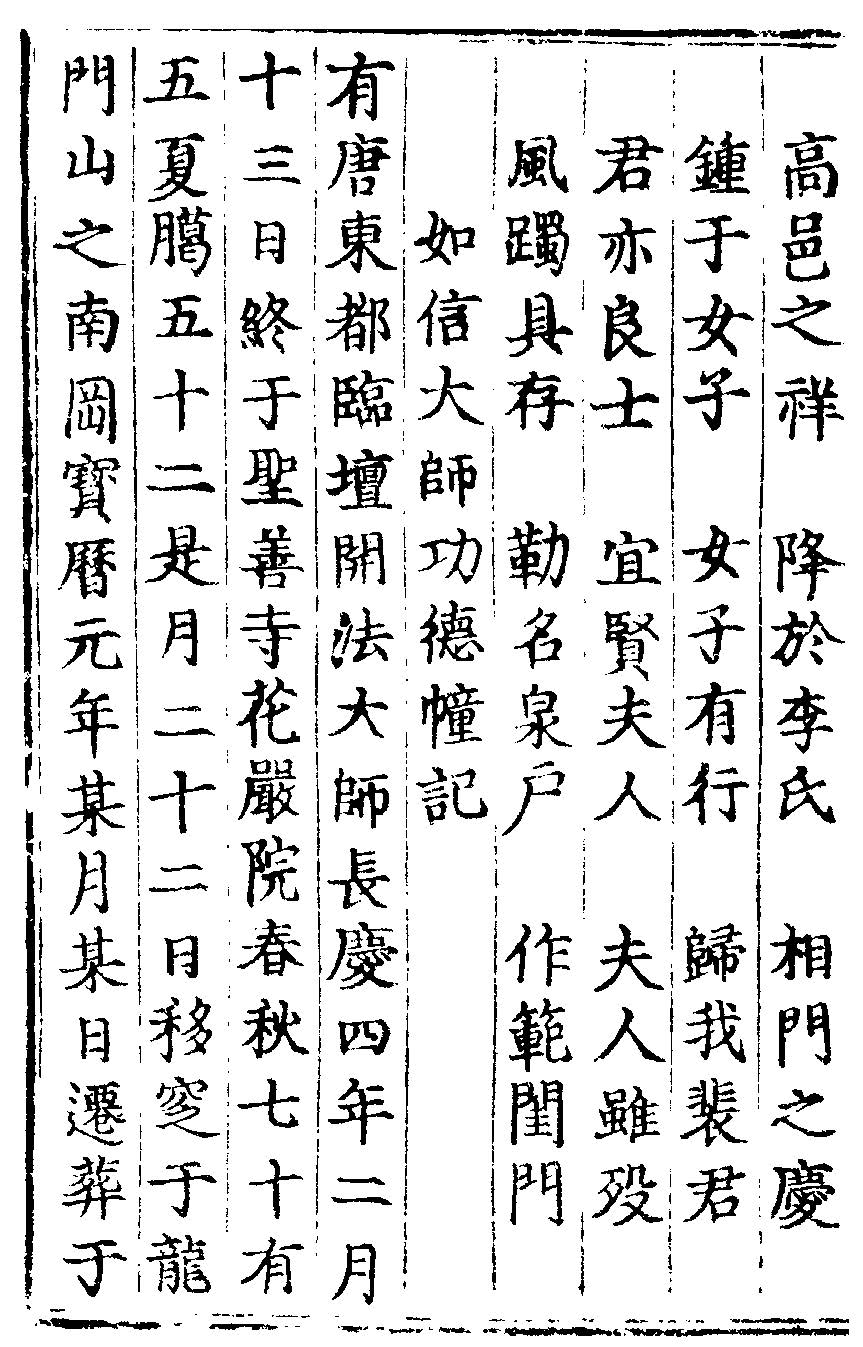 高邑之祥　降於李氏　相門之慶
鍾于女子　女子有行　歸我裴君
君亦良士　宜賢夫人　夫人雖歿
風躅具存　勒名泉戶　作範閨門
如信大師功德幢記
有唐東都臨壇開法大師長慶四年二月
十三日終于聖善寺花嚴院春秋七十有
五夏臈五十二是月二十二日移窆于龍
門山之南岡寶曆元年某月某日遷葬于